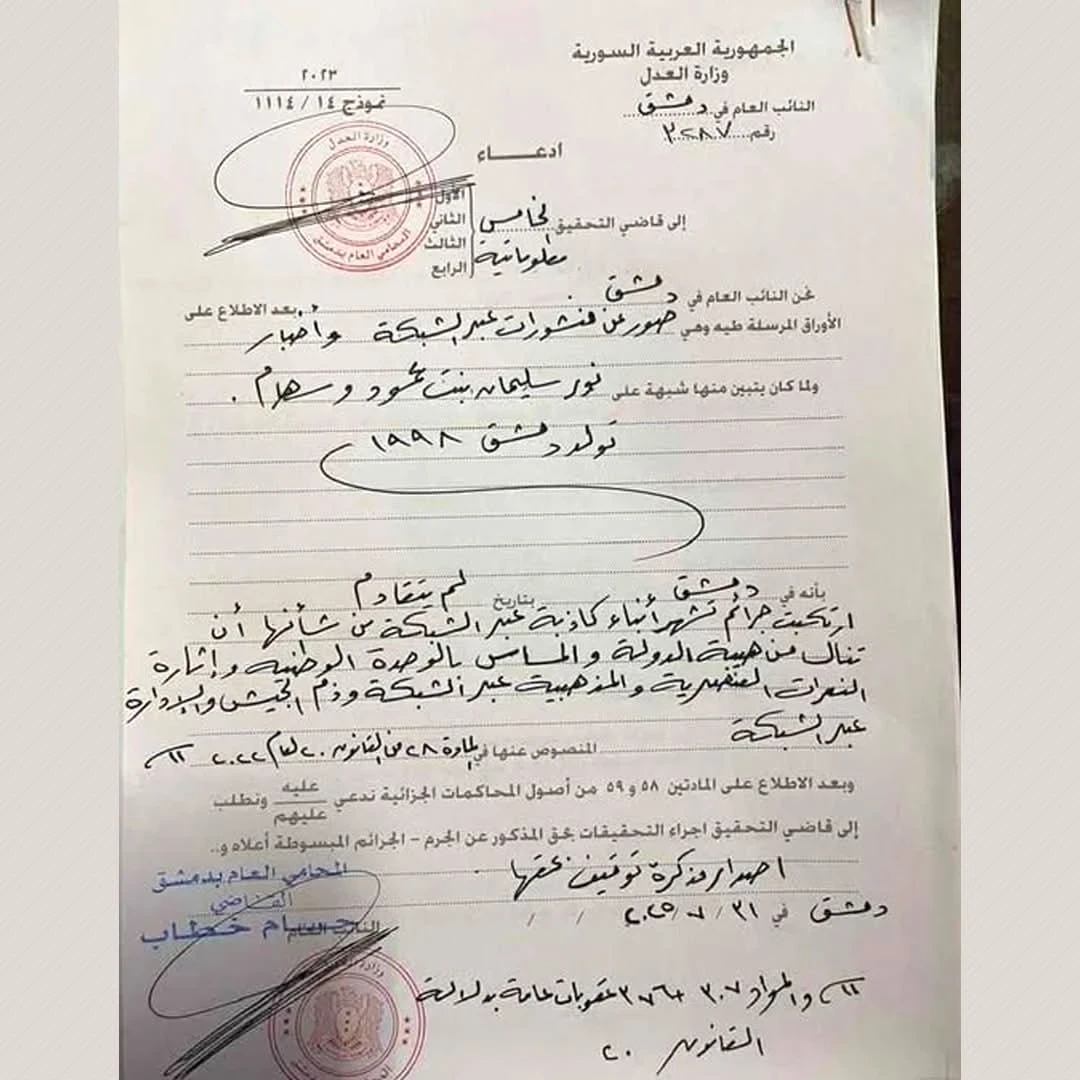 الجمهورية العربية السورية
وزارة العدل
النائب العام في دمشق
رقم ٣٢٨٧
٢٠٢٣
نموذج ١٤ / ١١١٤
وزارة العدل
المحامي العام بدمشق
ادعاء
إلى قاضي التحقيق الخامس
معلوماتية
الأول
الثاني
الثالث
الرابع
نحن النائب العام في دمشق بعد الاطلاع على
الأوراق المرسلة طيه وهي صور عن منشورات عبر الشبكة وأخبار
ولما كان يتبين منها شبهة على نور سليمان بنت محمود وسهام .
تولد دمشق ١٩٩٨
بأنه في دمشق بتاريخ لم يتقادم
ارتكبت جرائم نشر أنباء كاذبة عبر الشبكة من شأنها أن
تنال من هيبة الدولة والمساس بالوحدة الوطنية وإثارة
النعرات العنصرية والمذهبية عبر الشبكة وذم الجيش والإدارة
عبر الشبكة
المنصوص عنها في المادة ٢٨ من القانون ٢٠ لعام ٢٠٢٢
وبعد الاطلاع على المادتين ٥٨ و ٥٩ من أصول المحاكمات الجزائية ندعي عليه عليهم ونطلب
إلى قاضي التحقيق اجراء التحقيقات بحق المذكور عن الجرم - الجرائم المبسوطة أعلاه و..
اصدار مذكرة توقيف بحقها
دمشق في ٣١ / ٧ / ٢٠٢٥ / /
المحامي العام بدمشق
القاضي
حسام خطاب
النائب العام
والمواد ٣٠٧ عقوبات عامة بدلالة
القانون ٢٠